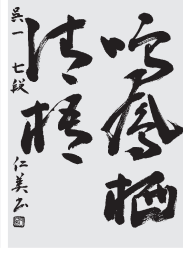 鳴鳳栖
清梧
呉一 七段 仁美